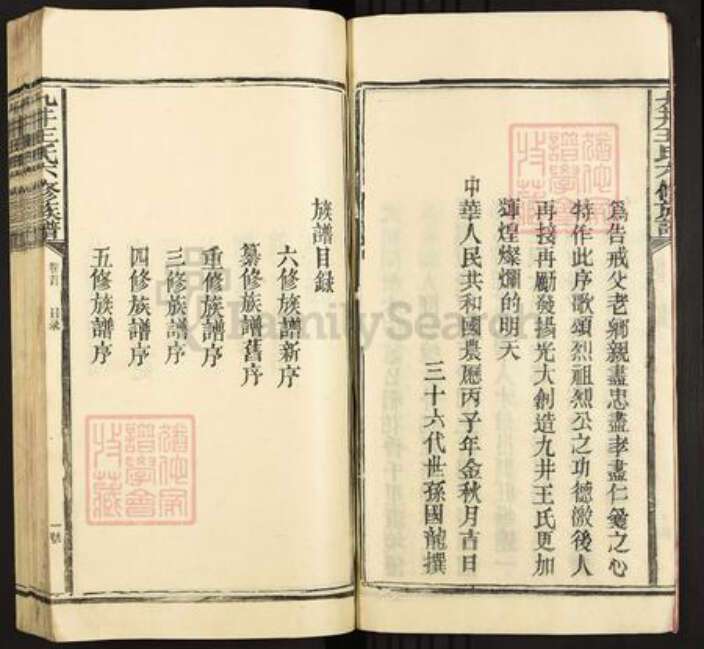 為告戒父老鄉親盡忠盡孝盡仁愛之心
特作此序歌頌烈祖烈公之功德激後人
再接再勵發揚光大創造九井王氏更加
輝煌燦爛的明天
中華人民共和國農曆丙子年金秋月吉日
三十六代世孫國龍撰
族譜目録
六修族譜新序
纂修族譜舊序
重修族譜序
三修族譜序
四修族譜序
五修族譜序
九井王氏六修族譜
卷首
目录
一號
九井王氏六修族譜
FamilySearch